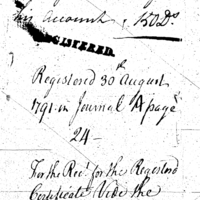 his account, 150 Ds.
REGISTERED.
Registered 30th August
1791 in Journal A page
24—
For the Rect. for the Registerd
Certificate Vide the